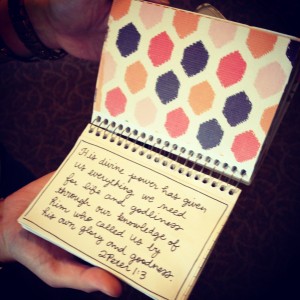 His divine power has given
us everything we need
for life and godliness
through our knowledge of
him who called us by
his own glory and goodness.
2 Peter 1:3